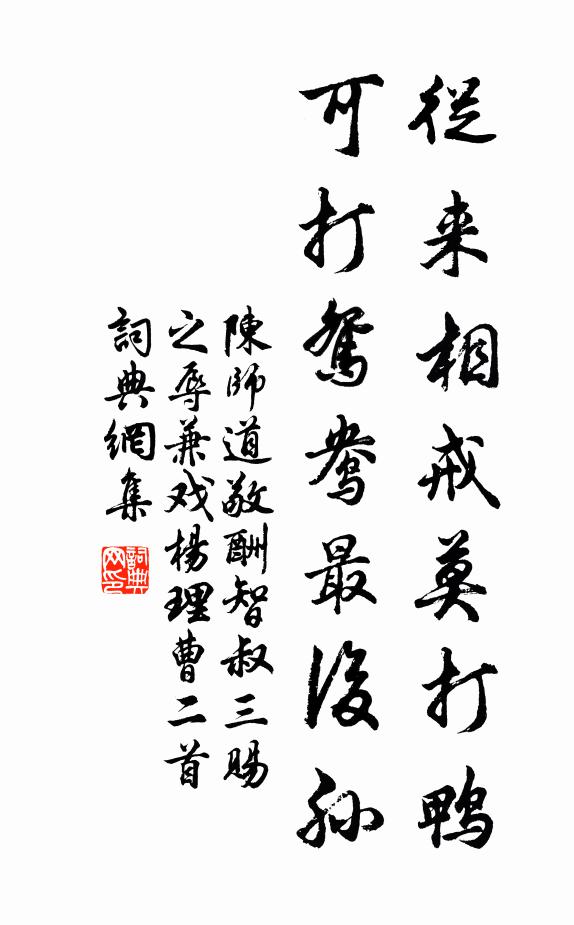 從来相戒莫打鴨
可打鴛鴦最後孫
陳師道敬酬智叔三賜
之辱兼戏楊理曹二首
詞典網集
詞典
网印